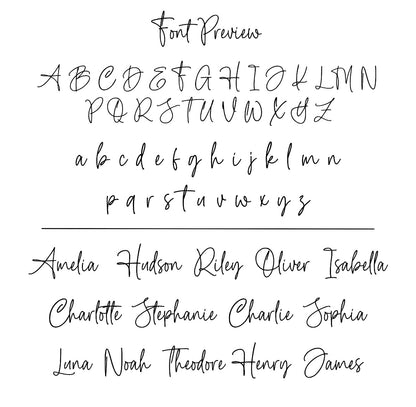 Font Preview
A B C D E F G H I J K L M N
P Q R S T U V W X Y Z
a b c d e f g h i j k l m n
p q r s t u v w x y z
Amelia Hudson Riley Oliver Isabella
Charlotte Stephanie Charlie Sophia
Luna Noah Theodore Henry James